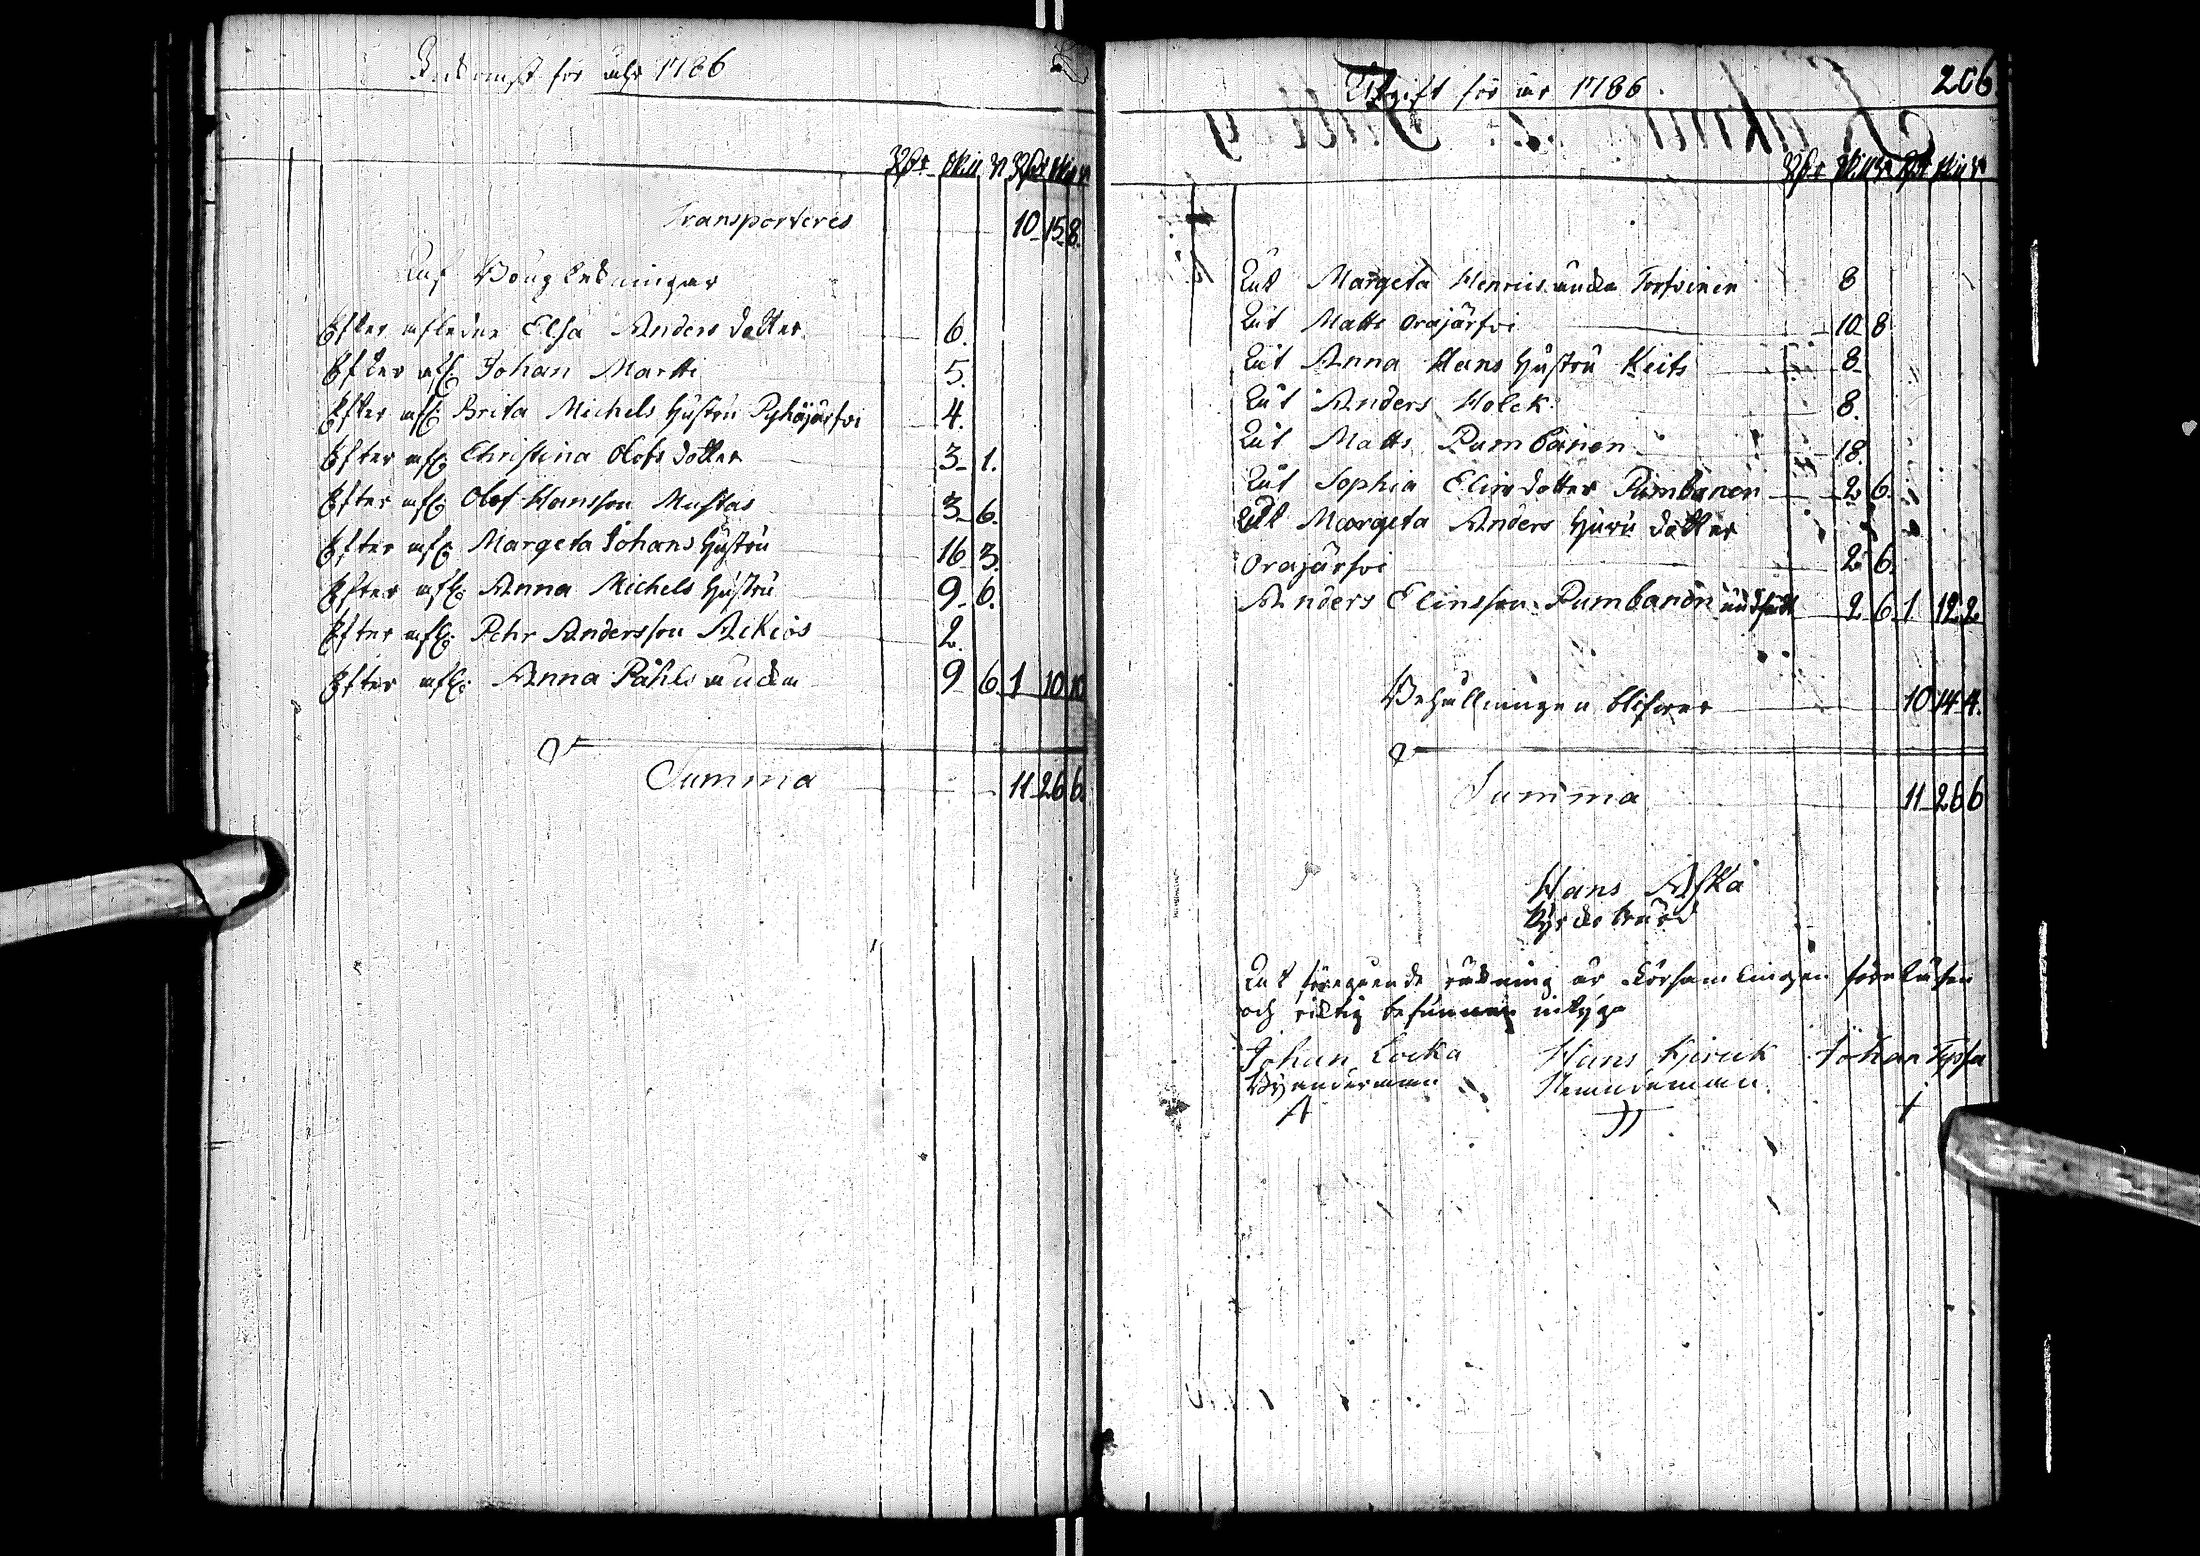 Inkomst för åhr 1786
Rdr Skill r Rdr skill r
Transporteres 10 15 8.
Af Bougsledningar
Efter afledne Elsa Andersdotter 6.
Efter afl: Johan Martti 5.
Efter afl: Brita Michels hustru Pyhäjärfvi 4.
Efter afl: Christina Olofsdotter 3 1.
Efter afl: Olof Hansson Mustas 3 6.
Efter afl: Margeta Johans hustru 16 3.
Efter afl: Anna Michels hustru 9 6.
Efter afl: Pehr Andersson Ackios 2.
Efter afl: Anna Påhls enckia 9 6. 1 10 10
Summa 11 26 6.
Utgift för år 1786. 206
Rdr skill r Rdr skill r
Åt Margeta Henrics enckia Torfvinen 8
Åt Matts Orajärfvi 10 8
Åt Anna Hans hustru Keits 8
Åt Anders Holck 8.
Åt Matts Rumbanen 18.
Åt Sophia Elinsdotter Rumbanen 2 6.
Åt Margeta Anders dotter
Orajärfvi 2 6.
Anders Elinsson Rumbanen 2 6 1 12 2
Behållningen blifver 10 14 4.
Summa 11 26 6
Hans Aska
Kyrckovärd
At föregående räkning är församlingen föreläsen
och riktig befunnen intyga
Johan Locka Hans Kjeruk Johan Typpa
Nämndeman